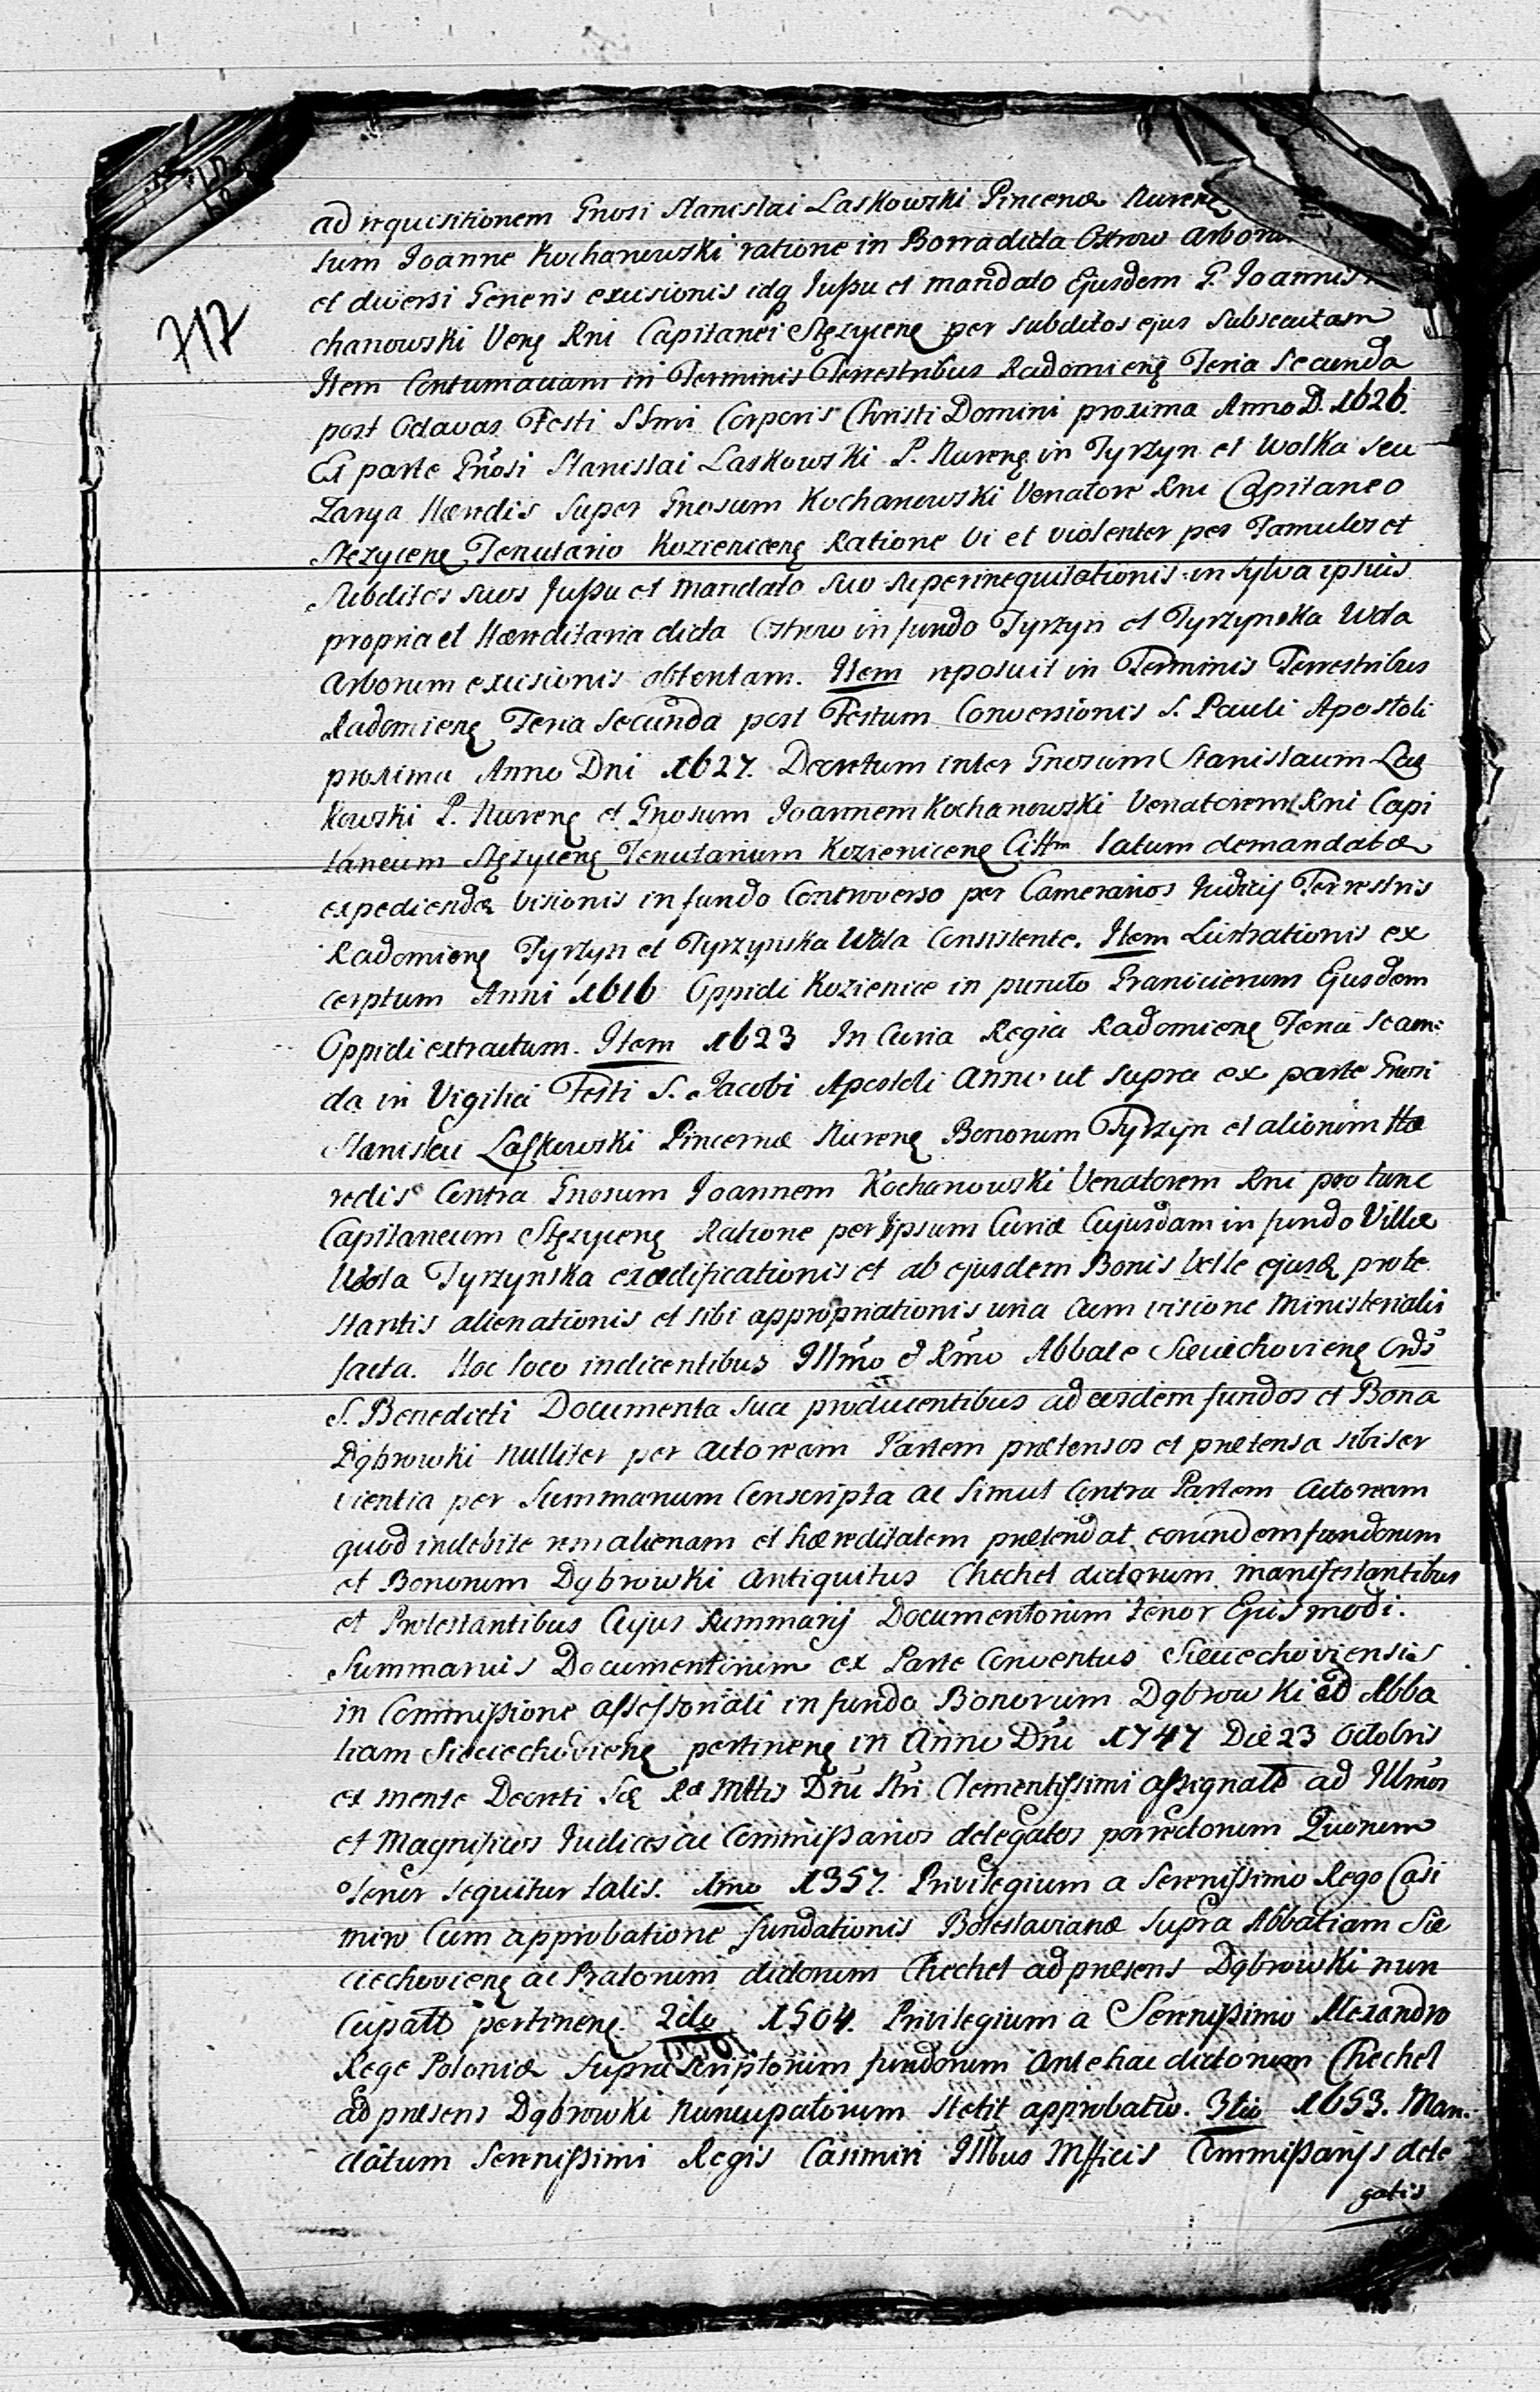 717
ad requisitionem Gnosi Stanislai Laskowski Pincernæ Nurenę
sum Joanne Kochanowski ratione in Borra dicta Ostrow Arborum
et diversi Generis excisionis idq Jussu et mandato Ejusdem G. Joannis
chanowski Venę Rni Capitanei Stęzycenę per subditos ejus subsecutam
Item Contumaciam in Terminis Terrestribus Radomienę Feria Secunda
post Octavas Festi SSmi Corporis Christi Domini proxima Anno D. 1626.
Ex parte Gnosi Stanislai Laskowski P. Nurenę in Tyrzyn et Wolka seu
Zarya Hæredis Super Gnosum Kochanowski Venatore Rni Capitaneo
Stezycenę Tenutario Kozienicenę Ratione Vi et violenter per Famulos et
Subditos suos Jussu et Mandato suo superinequitationis in sylva ipsius
propria et Hæreditaria dicta Ostrow in fundo Tyrzyn et Tyrzynska Wola
Arborum excisionis obtentam. Item reposuit in Terminis Terrestribus
Radomienę Feria Secunda post Festum Conversionis S. Pauli Apostoli
proxima Anno Dni 1627. Decretum inter Gnosum Stanislaum Las
kowski P. Nurenę et Gnosum Joannem Kochanowski Venatorem Rni Capi
taneum Stęzycenę Tenutarium Kozienicenę Cittm latum demandatæ
expediendæ visionis in fundo Controverso per Camerarios Judicij Terrestris
Radomienę Tyrzyn et Tyrzynska Wola Consistente. Item Lustrationis ex
cerptum Anni 1616 Oppidi Kozienice in puncto Granicierum Ejusdem
Oppidi extractum. Item 1623 In Curia Regia Radomienę Feria Secun:
da in Vigilia Festi S. Jacobi Apostoli Anno ut supra ex parte Gnosi
Stanislai Laskowski Pincernæ Nurenę Bonorum Tyrzyn et aliorum Hæ
redis Contra Gnosum Joannem Kochanowski Venatorem Rni pro tunc
Capitaneum Stęzycenę Ratione per Ipsum Curiæ Cujusdam in fundo Villæ
Wola Tyrzynska exædificationis et ab ejusdem Bonis Velle ejusq prote
stantis alienationis et sibi appropriationis una cum visione Ministerialis
facta. Hoc loco indicentibus Illmo & Rmo Abbate Sieciechovienę Ords
S. Benedicti Documenta sua producentibus ad eosdem fundos et Bona
Dąbrowki Nulliter per Actoream Partem prætensos et prætensa sibi ser
vientia per Summarium Conscripta ac Simul Contra Partem Actoream
quod indebite rem alienam et hæreditatem prætendat eorundem fundorum
et Bonorum Dąbrowki Antiquitus Chechel dictorum manifestantibus
et Protestantibus Cujus Summarij Documentorum tenor Ejusmodi.
Summarius Documentorum ex Parte Conventus Sieciechoviensis
in Commissione assessoriali in fundo Bonorum Dąbrowki ad Abba
tiam Sieciechovienę pertinenę in Anno Dni 1747 Die 23 Octobris
ex mente Decreti Sæ Ræ Mttis Dni Nri Clementissimi assignatæ ad Illmos
et Magnificos Judices ac Commissarios delegatos porrectorum Quorum
tenor sequitur talis. 1mo 1357. Privilegium a Serenissimo Rege Casi
miro Cum approbatione fundationis Boleslavianæ Supra Abbatiam Sie
ciechovienę ac Pratorum dictorum Chechel ad præsens Dąbrowki nun
cupatt pertinenę. 2do 1504. Privilegium a Serenissimo Alexandro
Rege Poloniæ Suprascriptorum fundorum antehac dictorum Chechel
ad præsens Dąbrowki Nuncupatorum stetit approbatio. 3tio 1653. Man.
datum Serenissimi Regis Casimiri Illbus Mfficis Commissarijs dele
gatis